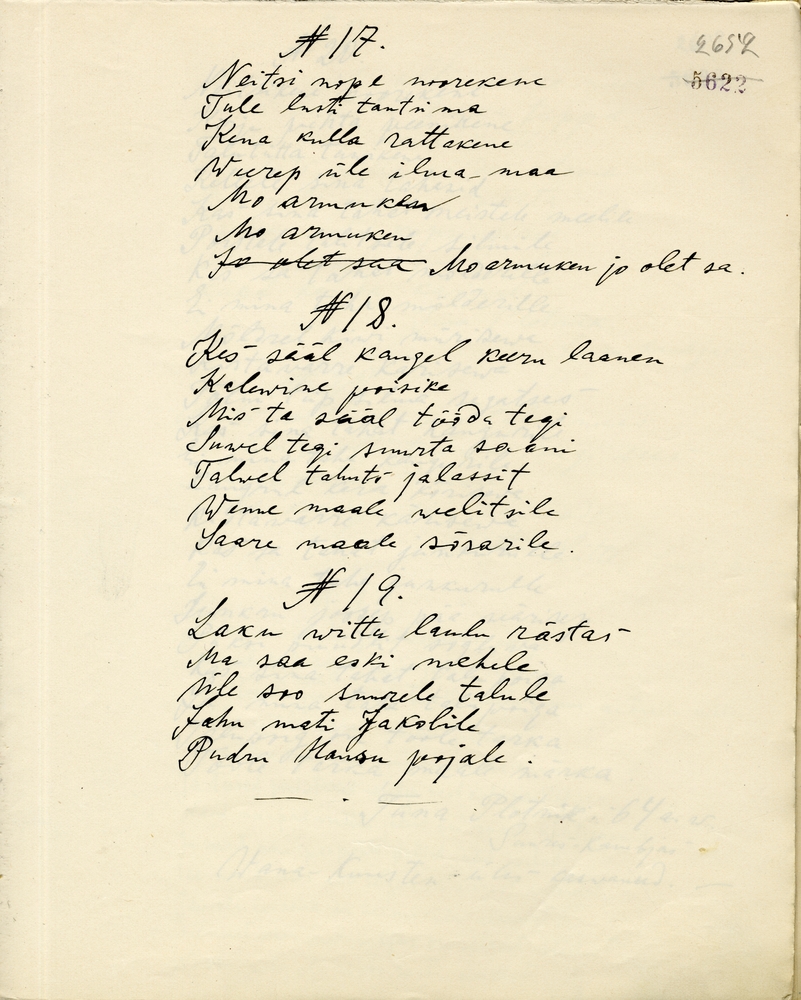 2652
5622
N 17.
Neitsi nope noorekene
Tule lusti tantsima
Kena kulla rattakene
Weerep üle ilma-maa
Mo armuken
Mo armuken
Jo olet saa Mo armuken jo olet sa.
N 18.
Kes sääl kaugel keeru laanen
Kalewine poisike
Mis ta sääl tööda tegi
Suwel tegi suurta saani
Talwel tahuts jalassit
Wenne maale welitsile
Saare maale sõsarile.
N 19.
Laku wittu laulu rästas
Ma saa eski mehele
Üle soo suurele talule
Jahu mati Jakobile
Pudru Hansu pojale.